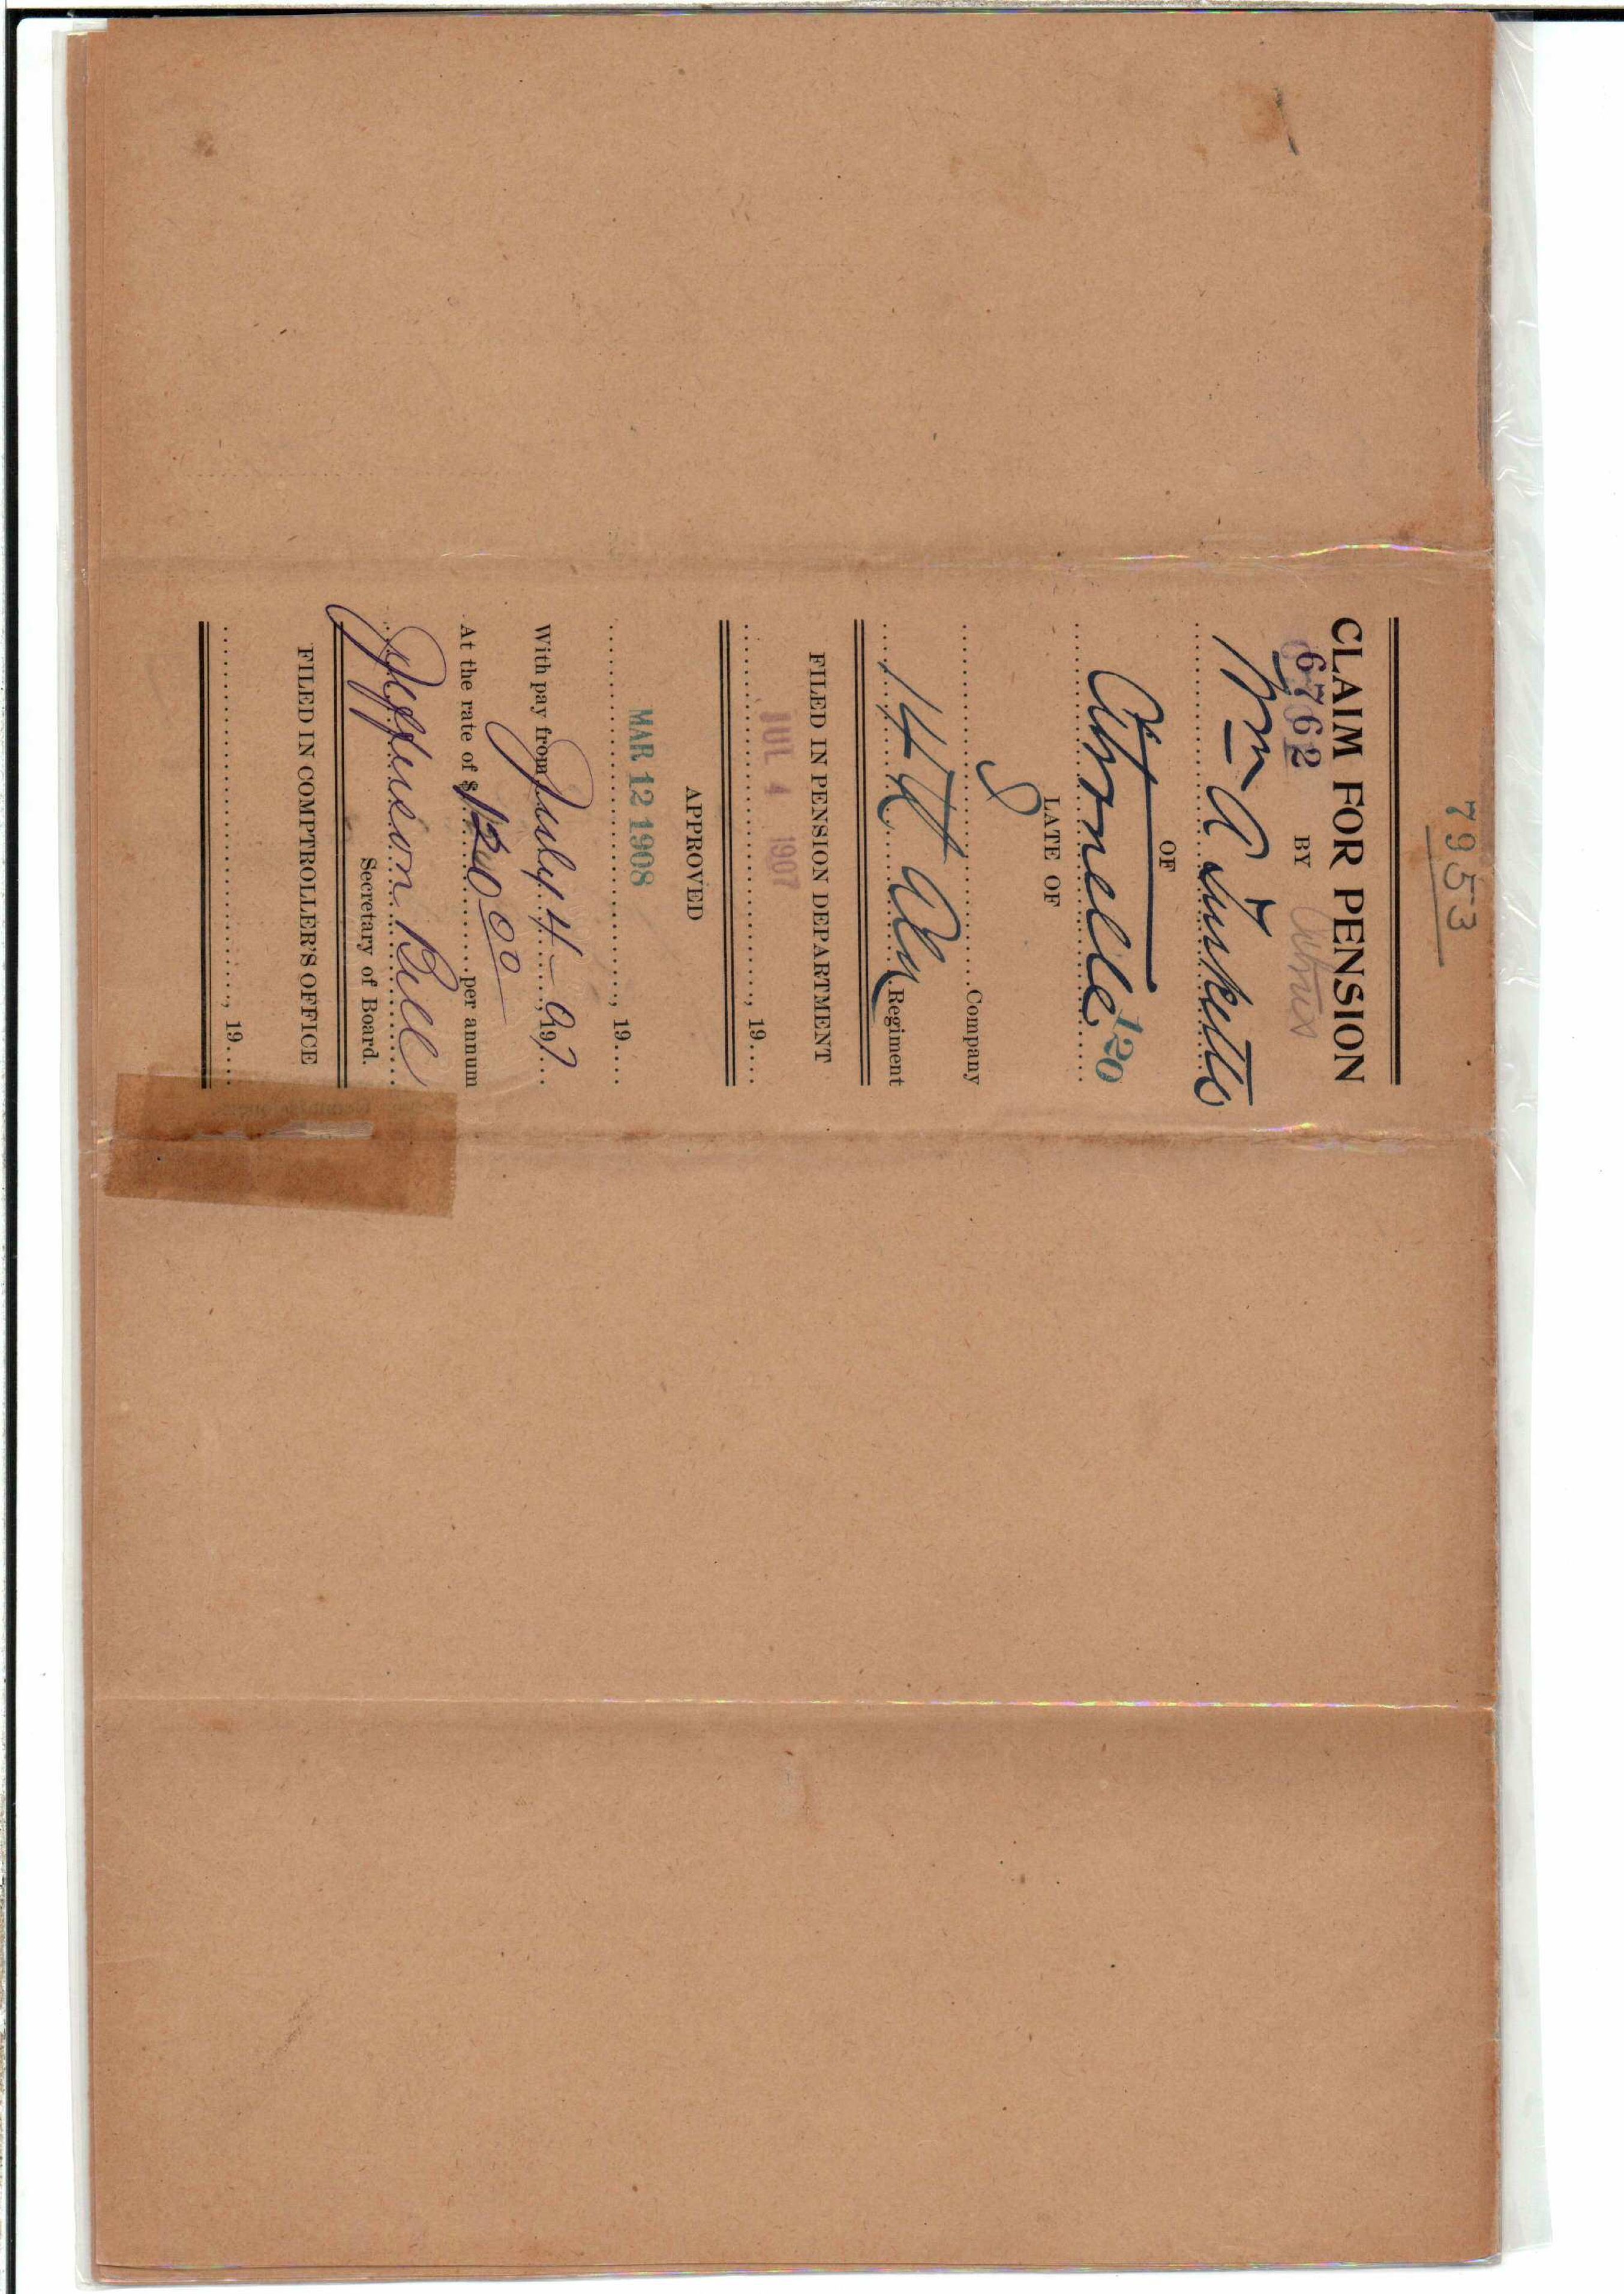 7953
CLAIM FOR PENSION
6762 BY
Wm A
OF
120
LATE OF
Company
14th Ala Regiment
FILED IN PENSION DEPARTMENT
JUL 4 1907
, 19....
APPROVED
MAR 12 1908
, 19....
With pay from July 4 - 07, 19...
At the rate of $ 120 00 per annum
Jefferson Bell
Secretary of Board.
FILED IN COMPTROLLER'S OFFICE
, 19....